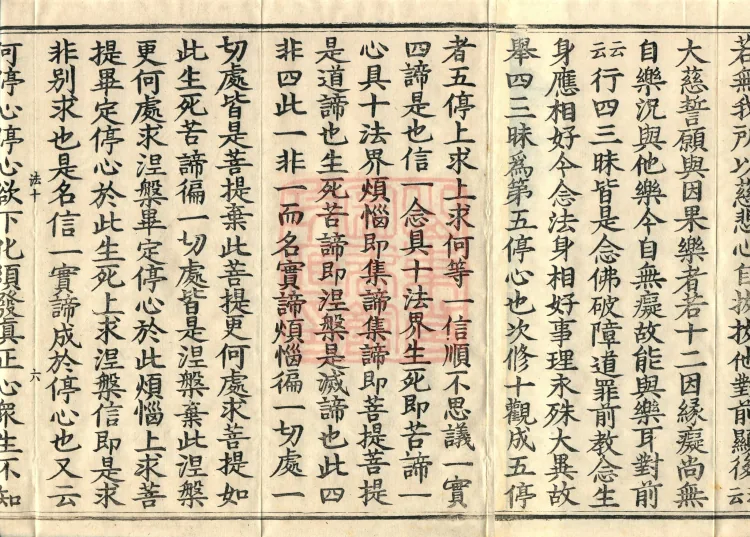 若無我所以慈悲心自拔拔他對前顯後云
大慈誓願與因果樂者若十二因緣癡尚無
自樂況與他樂今自無癡故能與樂耳對前
云云行四三昧皆是念佛破障道罪前教念生
身應相好今念法身相好事理永殊大異故
舉四三昧爲第五停心也次修十觀成五停
者五停上求上求何等一信順不思議一實
四諦是也信一念具十法界生死即苦諦一
心具十法界煩惱即集諦集諦即菩提菩提
是道諦也生死苦諦即涅槃是滅諦也此四
非四此一非一而名實諦煩惱徧一切處一
切處皆是菩提棄此菩提更何處求菩提如
此生死苦諦徧一切處皆是涅槃棄此涅槃
更何處求涅槃畢定停心於此煩惱上求菩
提畢定停心於此生死上求涅槃信即是求
非別求也是名信一實諦成於停心也又云
法十 六
何停心停心欲下化須發真正心眾生不知